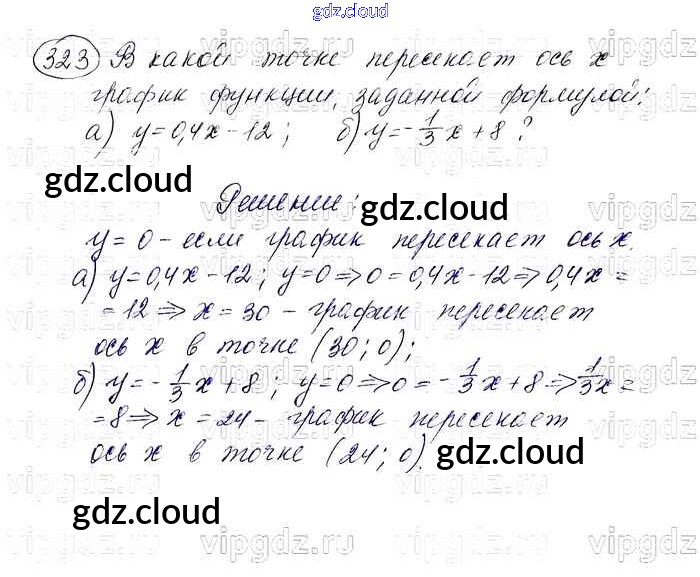 gdz.cloud
323 В какой точке пересекает ось x
график функции, заданной формулой:
а) y=0,4x-12; б) y=-1/3x+8?
gdz.cloud
Решение:
gdz.cloud
y=0-если график пересекает ось x.
а) y=0,4x-12; y=0⇒0=0,4x-12⇒0,4x=
=12⇒x=30-график пересекает
ось x в точке (30;0);
б) y=-1/3x+8; y=0⇒0=-1/3x+8⇒1/3x=
=8⇒x=24-график пересекает
ось x в точке (24;0).
gdz.cloud
gdz.cloud
vipgdz.ru
vipgdz.ru